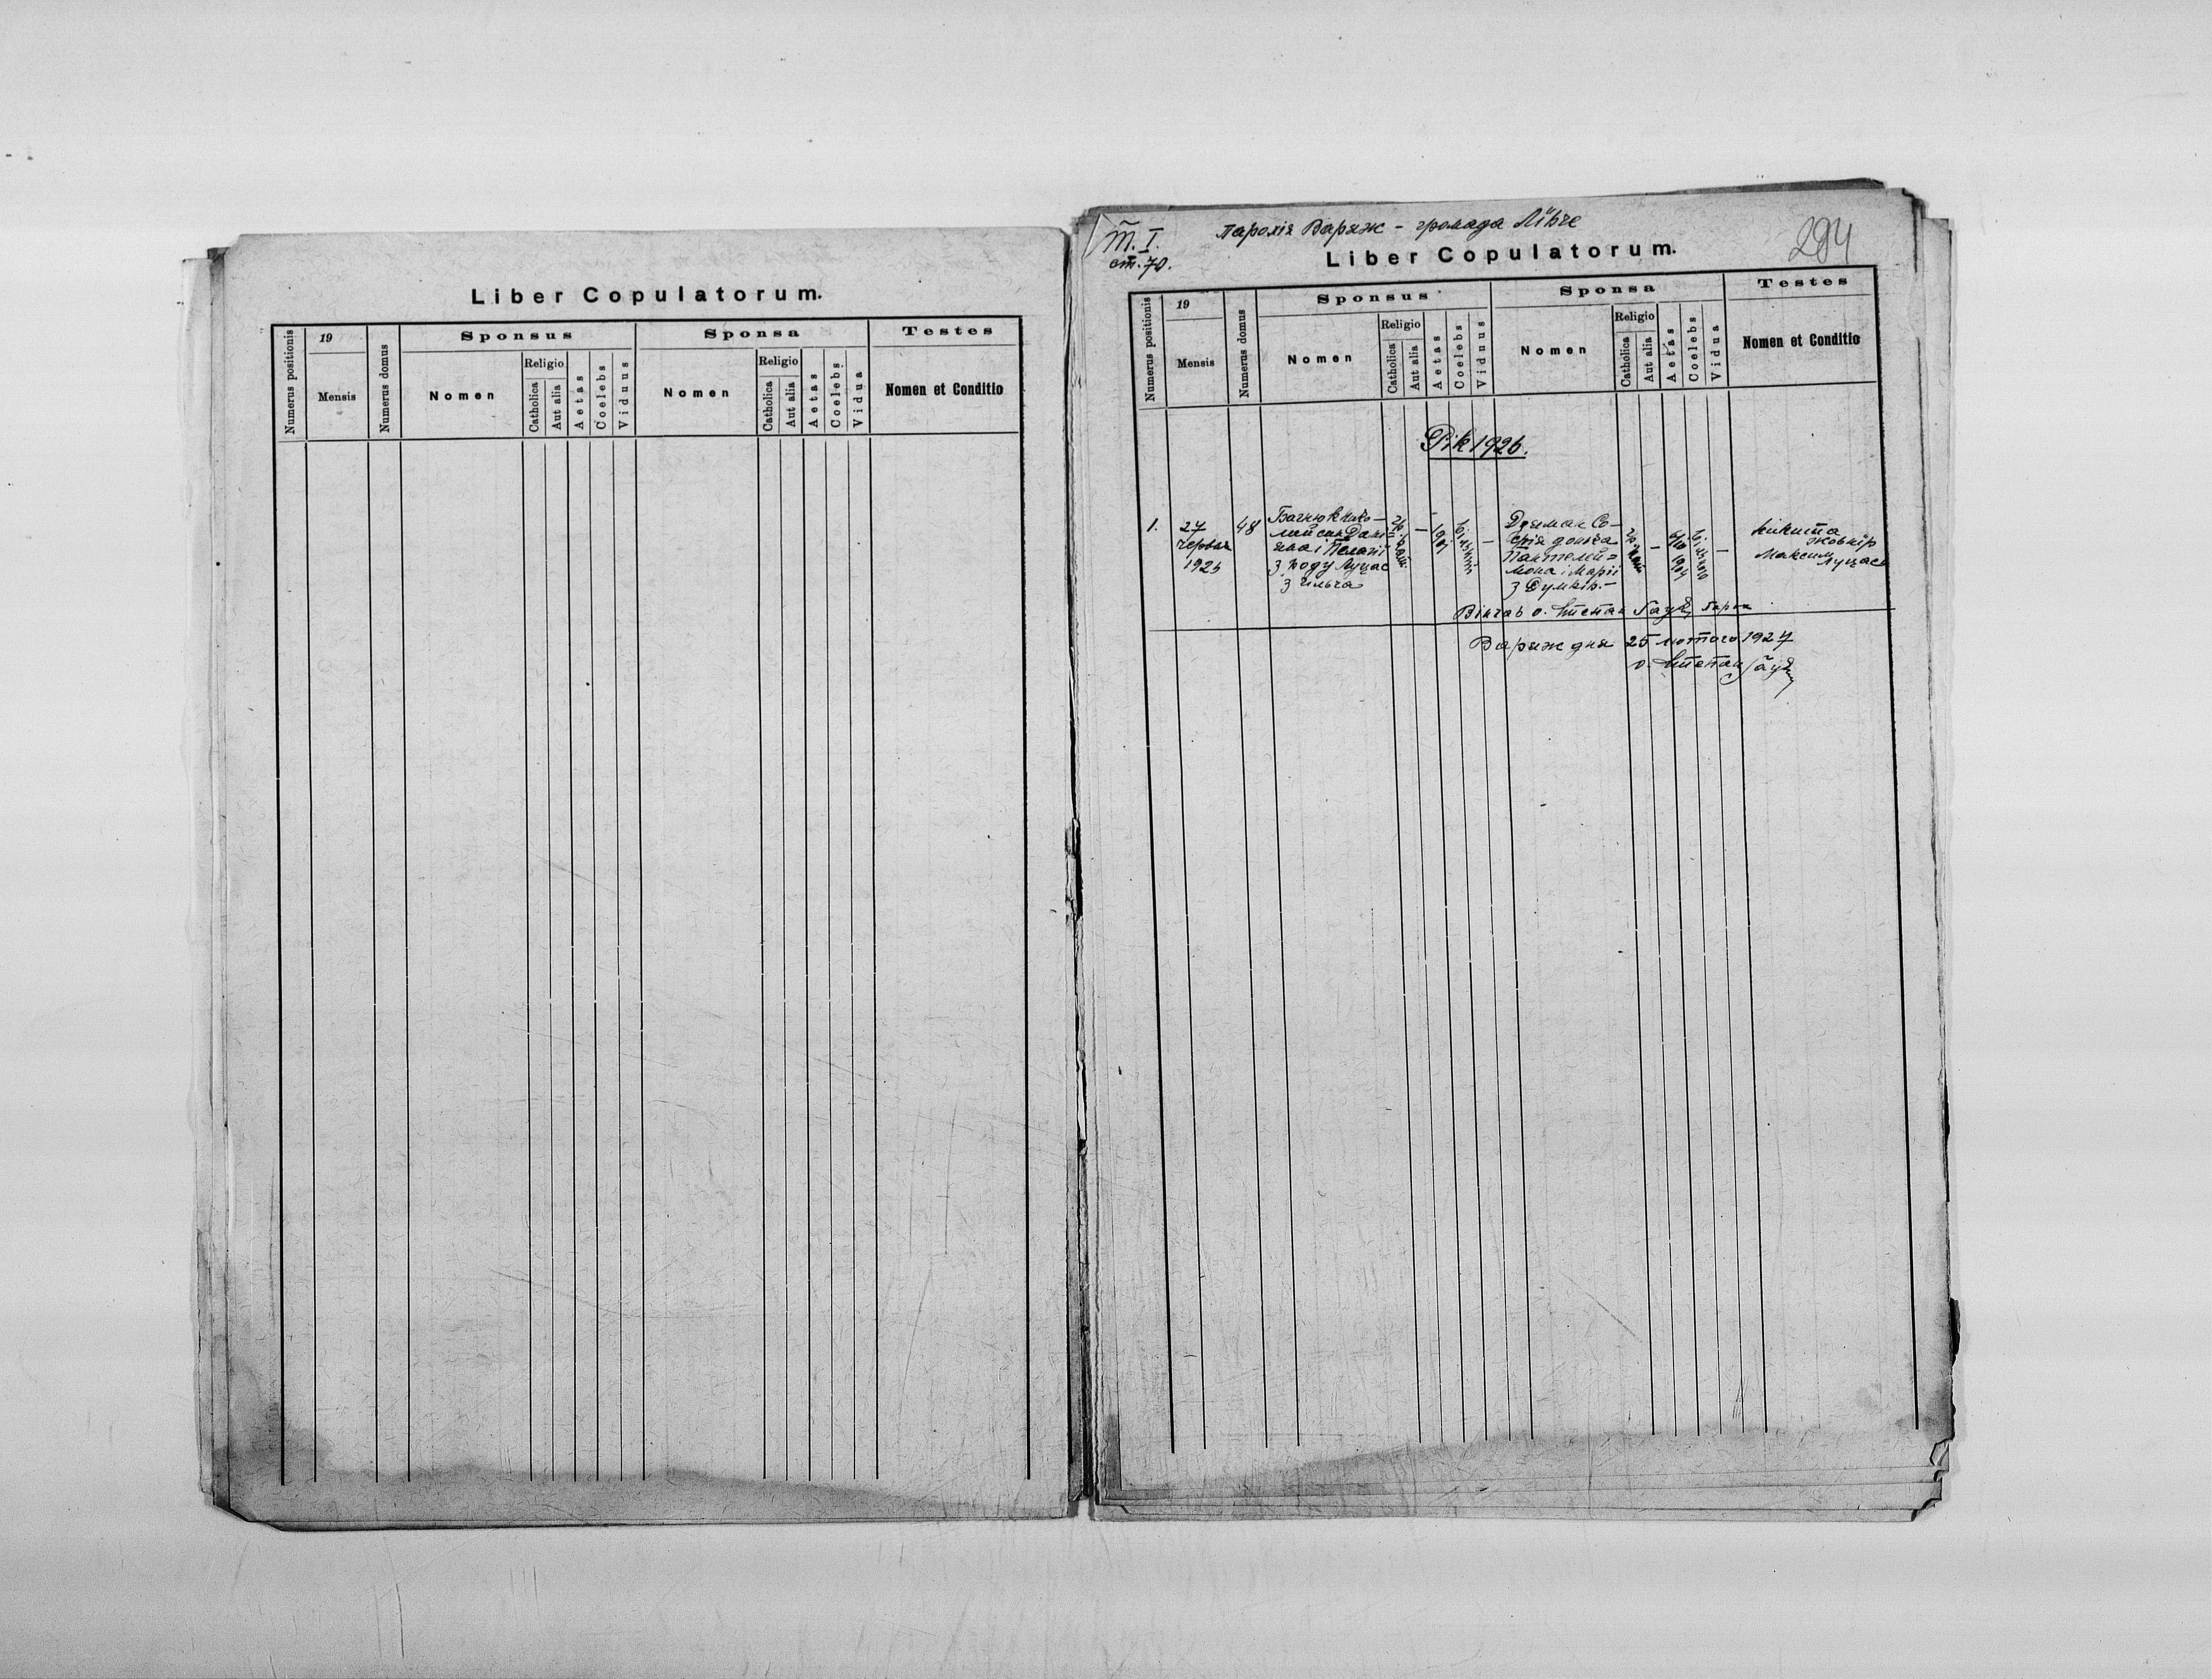 Liber Copulatorum.
Numerus positionis
19
Mensis
Numerus domus
Sponsus
Nomen
Religio
Catholica
Aut alia
Aetas
Coelebs
Viduus
Sponsa
Nomen
Religio
Catholica
Aut alia
Aetas
Coelebs
Vidua
Testes
Nomen et Conditio
Т. I.
ст. 70.
парохія Варяж - громада Лівче
294
Liber Copulatorum.
Numerus positionis
19
Mensis
Numerus domus
Sponsus
Nomen
Religio
Catholica
Aut alia
Aetas
Coelebs
Viduus
Sponsa
Nomen
Religio
Catholica
Aut alia
Aetas
Coelebs
Vidua
Testes
Nomen et Conditio
Рік 1926.
1.
27
червня
192
48
Мико-
лай син Дані
іла і Пелагії
з роду Луцас
з
—
—
Со-
фія донька
Пантелей=
мона і Марії
з Думків.—
—
—
Никита
Жовнір
Максим
Луцас
Вінчав о. Степан
Варяж дня 25 лютого 1927
о. Степан